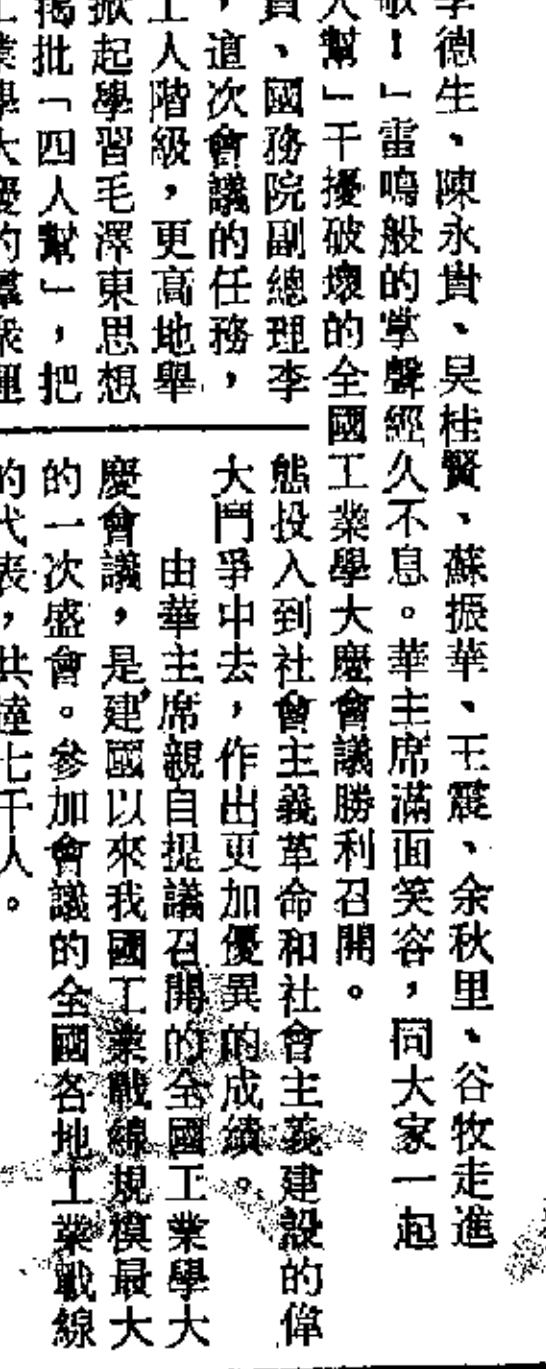 李德生、陳永貴、吳桂賢、蘇振華、王震、余秋里、谷牧走進
敬！」雷鳴般的掌聲經久不息。華主席滿面笑容，同大家一起
人幫」干擾破壞的全國工業學大慶會議勝利召開。
、國務院副總理李
，這次會議的任務，
工人階級，更高地舉
掀起學習毛澤東思想
揭批「四人幫」，把
業學大慶的羣衆運
態投入到社會主義革命和社會主義建設的偉
大鬥爭中去，作出更加優異的成績。
由華主席親自提議召開的全國工業學大
慶會議，是建國以來我國工業戰線規模最大
的一次盛會。參加會議的全國各地工業戰線
的代表，共達七千人。